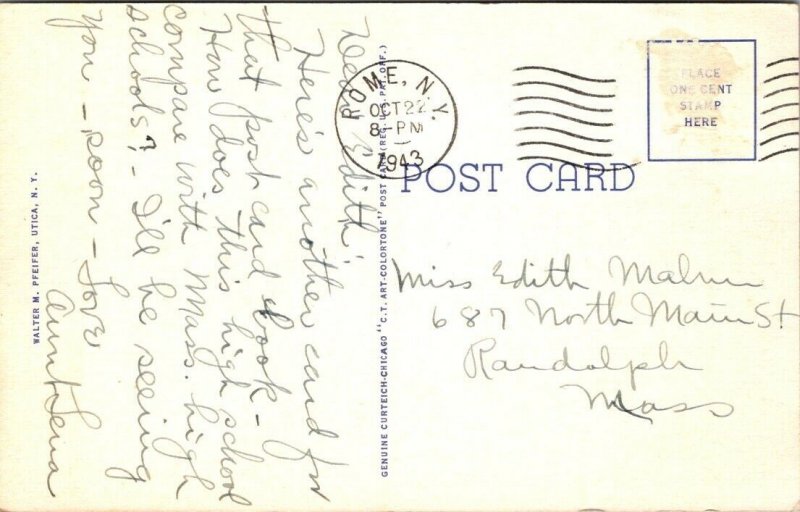 Dear Edith,
Here's another card for
that post card book -
How does this high school
compare with Mass. high
schools? - I'll be seeing
you - soon - Love
Aunt Lena
ROME, N.Y.
OCT 22
8-PM
1943
PLACE
ONE CENT
STAMP
HERE
POST CARD
Miss Edith
687 North Main St
Randolph
Mass
GENUINE CURTEICH-CHICAGO "C.T. ART-COLORTONE" POST CARD (REG. U.S. PAT. OFF.)
WALTER M. PFEIFER, UTICA, N. Y.